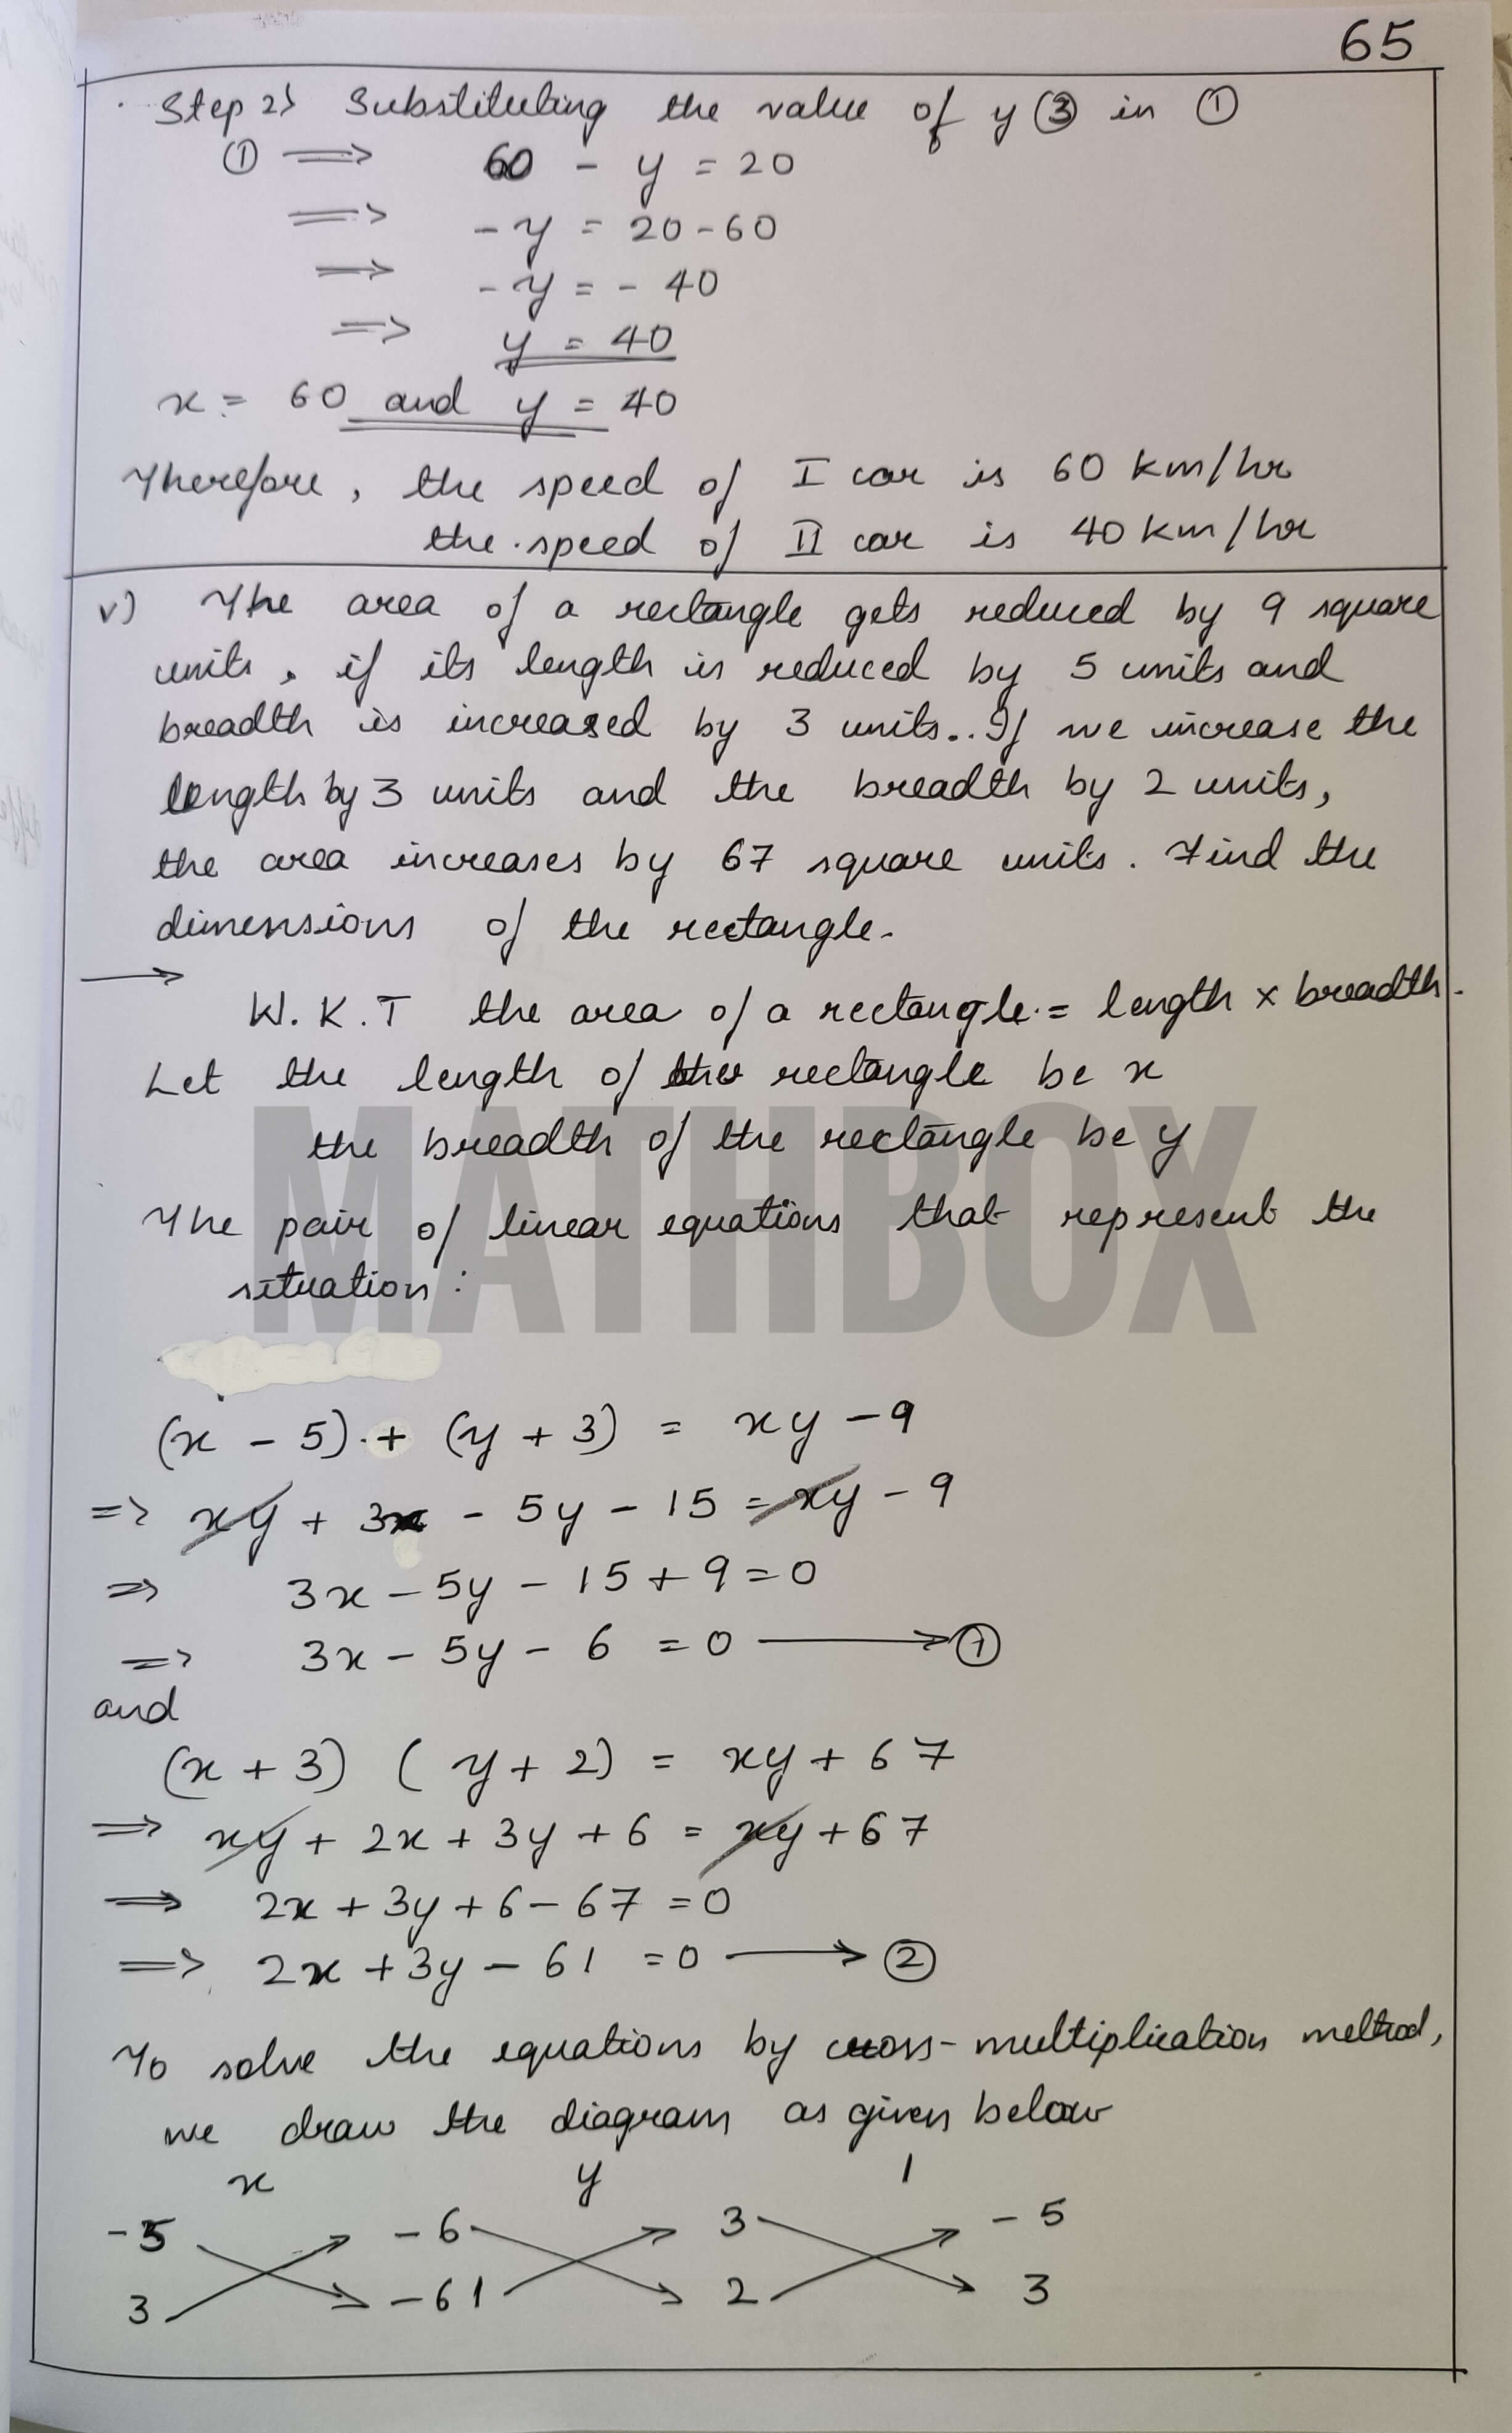 65
Step 2) Substituting the value of y ③ in ①
① ⟹ 60 - y = 20
⟹ -y = 20-60
⟹ -y = - 40
⟹ y = 40
x = 60 and y = 40
Therefore, the speed of I car is 60 km/hr
the speed of II car is 40 km/hr
v) The area of a rectangle gets reduced by 9 square
units, if its length is reduced by 5 units and
breadth is increased by 3 units.. If we increase the
length by 3 units and the breadth by 2 units,
the area increases by 67 square units. Find the
dimensions of the rectangle.
→ W.K.T the area of a rectangle = length × breadth.
Let the length of the rectangle be x
the breadth of the rectangle be y
MATHBOX
The pair of linear equations that represent the
situation :
(x - 5) + (y + 3) = xy - 9
=> xy + 3x - 5y - 15 = xy - 9
=> 3x - 5y - 15 + 9 = 0
=> 3x - 5y - 6 = 0 → ①
and
(x + 3) ( y + 2) = xy + 67
=> xy + 2x + 3y + 6 = xy + 67
=> 2x + 3y + 6 - 67 = 0
=> 2x + 3y - 61 = 0 → ②
To solve the equations by cross-multiplication method,
we draw the diagram as given below
x y 1
-5 -6 3 -5
3 -61 2 3